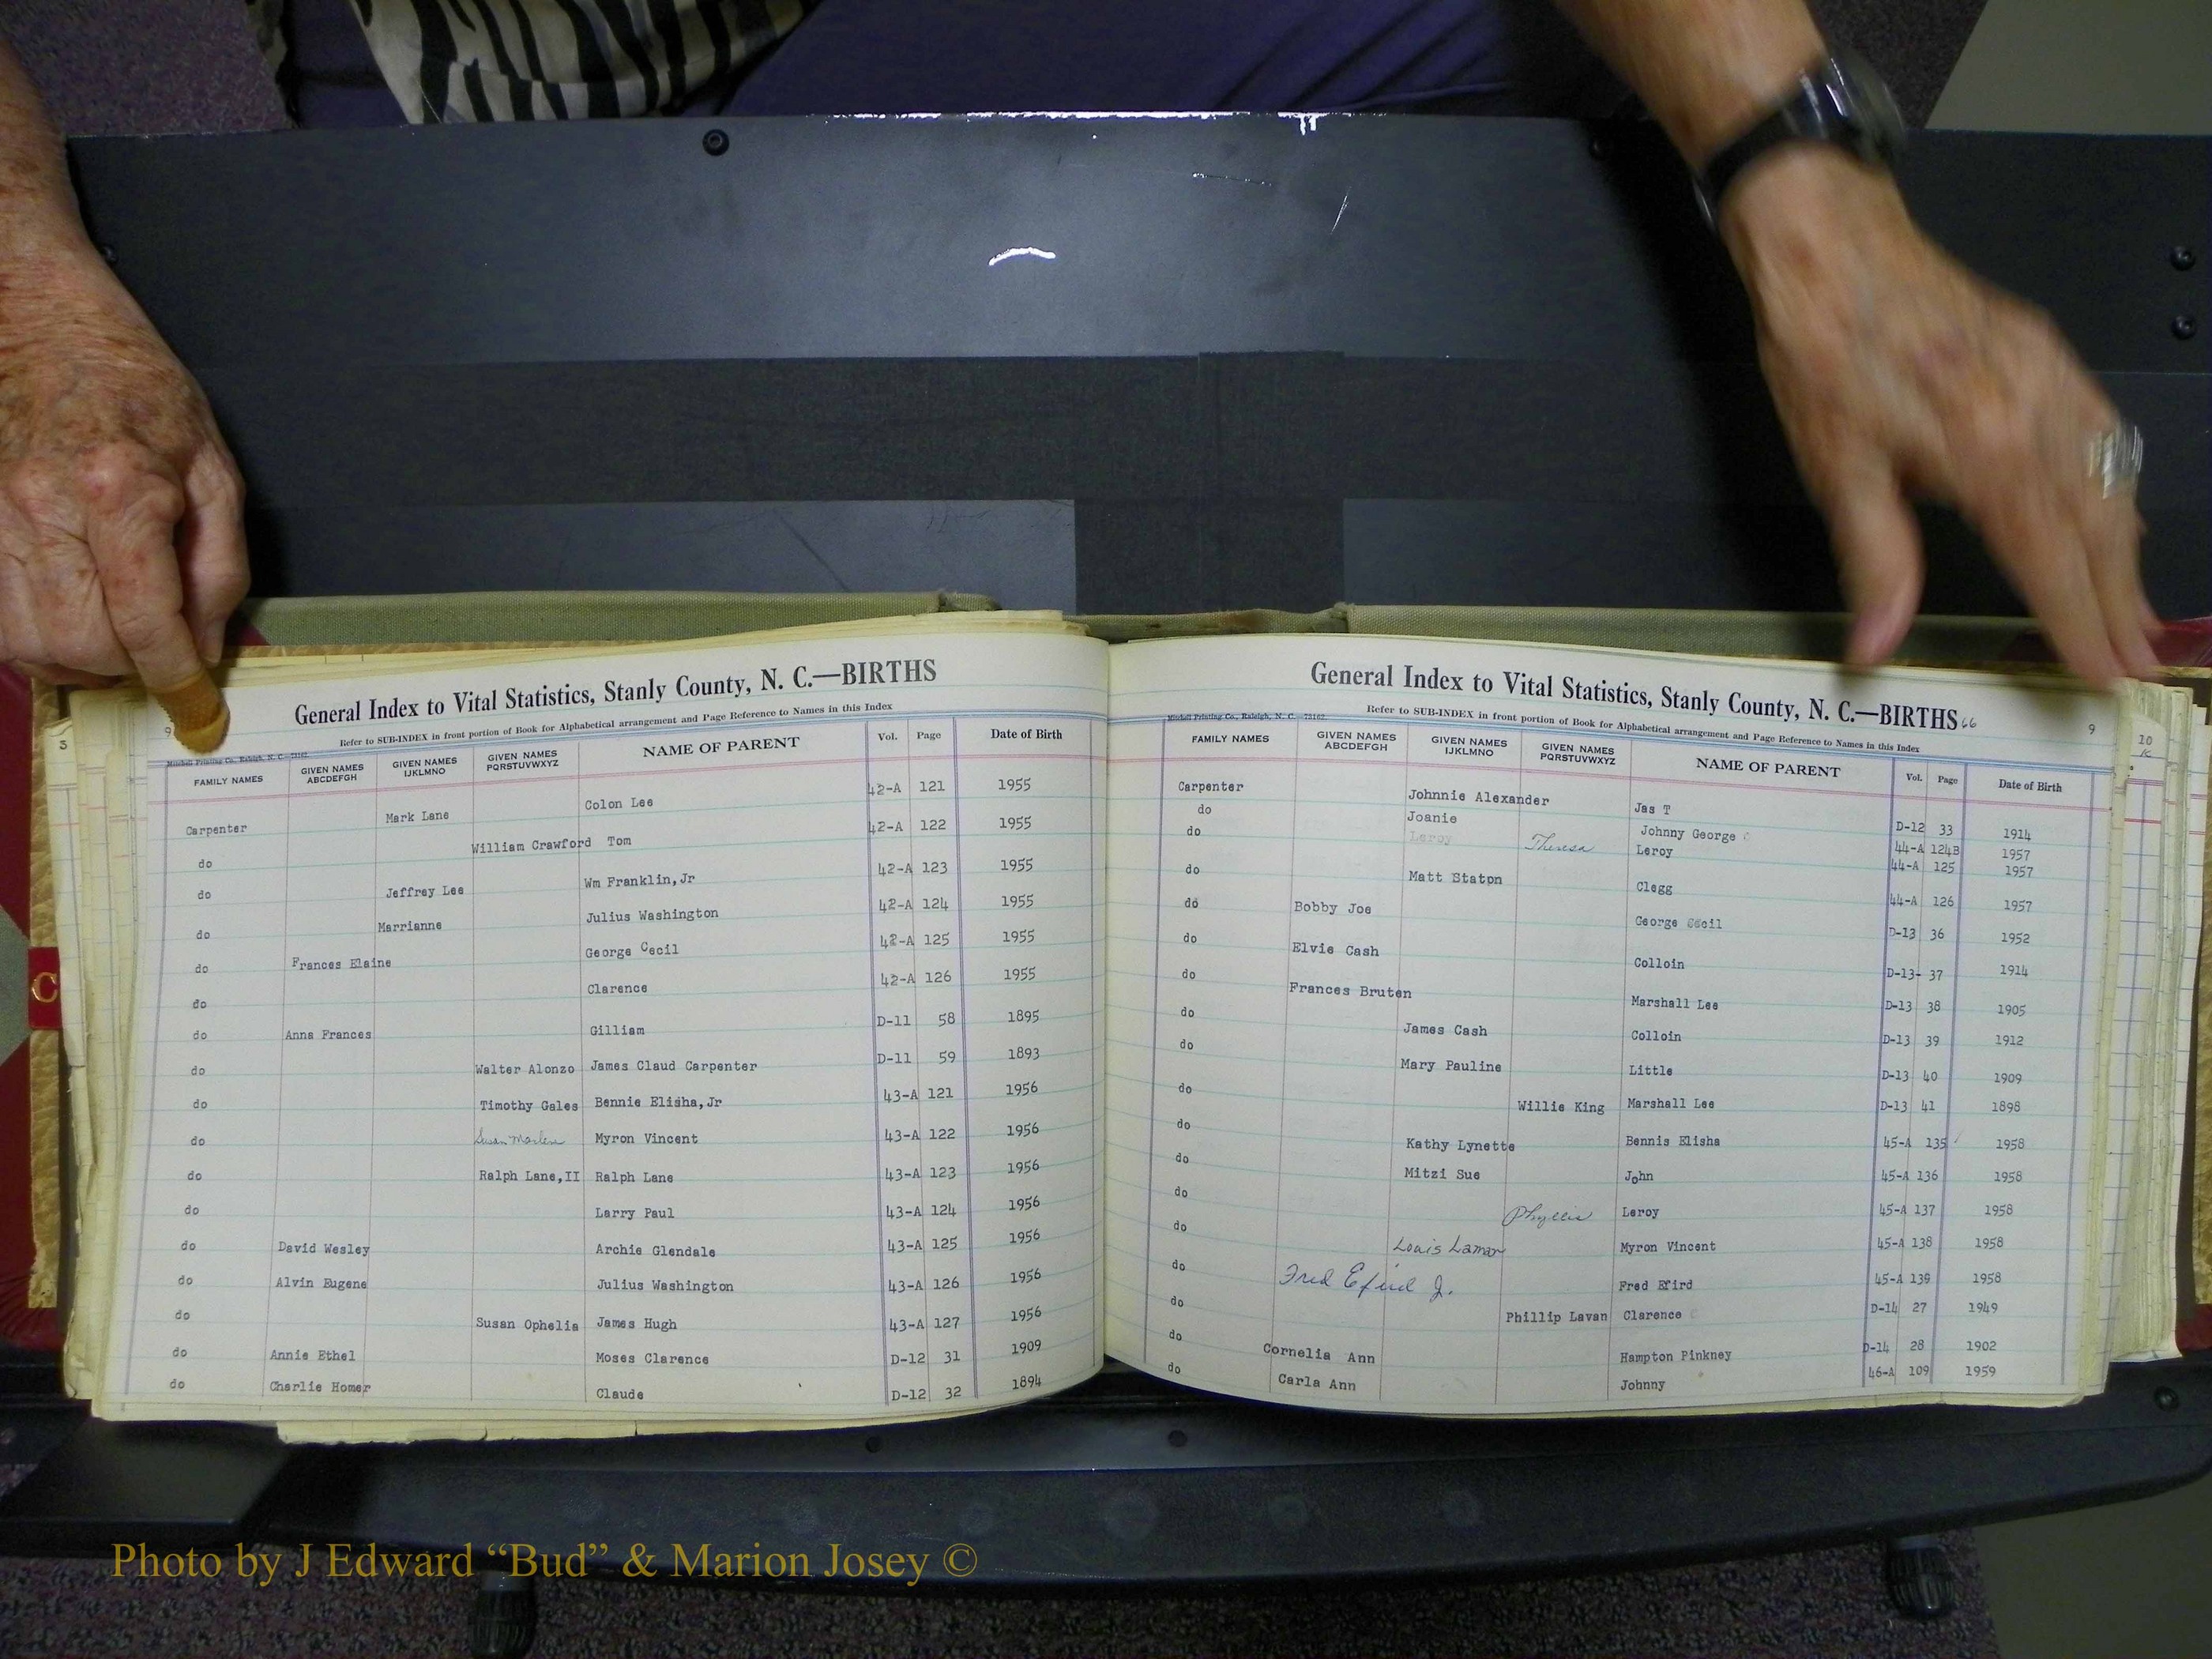 General Index to Vital Statistics, Stanly County, N. C.—BIRTHS
Refer to SUB-INDEX in front portion of Book for Alphabetical arrangement and Page Reference to Names in this Index
3 9
Mitchell Printing Co., Raleigh, N. C.
FAMILY NAMES GIVEN NAMES ABCDEFGH GIVEN NAMES IJKLMNO GIVEN NAMES PQRSTUVWXYZ NAME OF PARENT Vol. Page Date of Birth
Carpenter Mark Lane Colon Lee 42-A 121 1955
do William Crawford Tom 42-A 122 1955
do Jeffrey Lee Wm Franklin,Jr 42-A 123 1955
do Marrianne Julius Washington 42-A 124 1955
do Frances Elaine George Cecil 42-A 125 1955
do Clarence 42-A 126 1955
do Anna Frances Gilliam D-11 58 1895
do Walter Alonzo James Claud Carpenter D-11 59 1893
do Timothy Gales Bennie Elisha,Jr 43-A 121 1956
do Susan Marlene Myron Vincent 43-A 122 1956
do Ralph Lane,II Ralph Lane 43-A 123 1956
do Larry Paul 43-A 124 1956
do David Wesley Archie Glendale 43-A 125 1956
do Alvin Eugene Julius Washington 43-A 126 1956
do Susan Ophelia James Hugh 43-A 127 1956
do Annie Ethel Moses Clarence D-12 31 1909
do Charlie Homer Claude D-12 32 1894
C
General Index to Vital Statistics, Stanly County, N. C.—BIRTHS 66
9
Refer to SUB-INDEX in front portion of Book for Alphabetical arrangement and Page Reference to Names in this Index
Mitchell Printing Co., Raleigh, N. C. 73162
FAMILY NAMES GIVEN NAMES ABCDEFGH GIVEN NAMES IJKLMNO GIVEN NAMES PQRSTUVWXYZ NAME OF PARENT Vol. Page Date of Birth
Carpenter Johnnie Alexander Jas T D-12 33 1914
do Joanie Johnny George 44-A 124B 1957
do Leroy Theresa Leroy 44-A 125 1957
do Matt Staton Clegg 44-A 126 1957
do Bobby Joe George Cecil D-13 36 1952
do Elvie Cash Colloin D-13- 37 1914
do Frances Bruten Marshall Lee D-13 38 1905
do James Cash Colloin D-13 39 1912
do Mary Pauline Little D-13 40 1909
do Willie King Marshall Lee D-13 41 1898
do Kathy Lynette Bennis Elisha 45-A 135 1958
do Mitzi Sue John 45-A 136 1958
do Phyllis Leroy 45-A 137 1958
do Louis Lamar Myron Vincent 45-A 138 1958
do Fred Efird Jr. Fred Efird 45-A 139 1958
do Phillip Lavan Clarence D-14 27 1949
do Cornelia Ann Hampton Pinkney D-14 28 1902
do Carla Ann Johnny 46-A 109 1959
10
Photo by J Edward “Bud” & Marion Josey ©